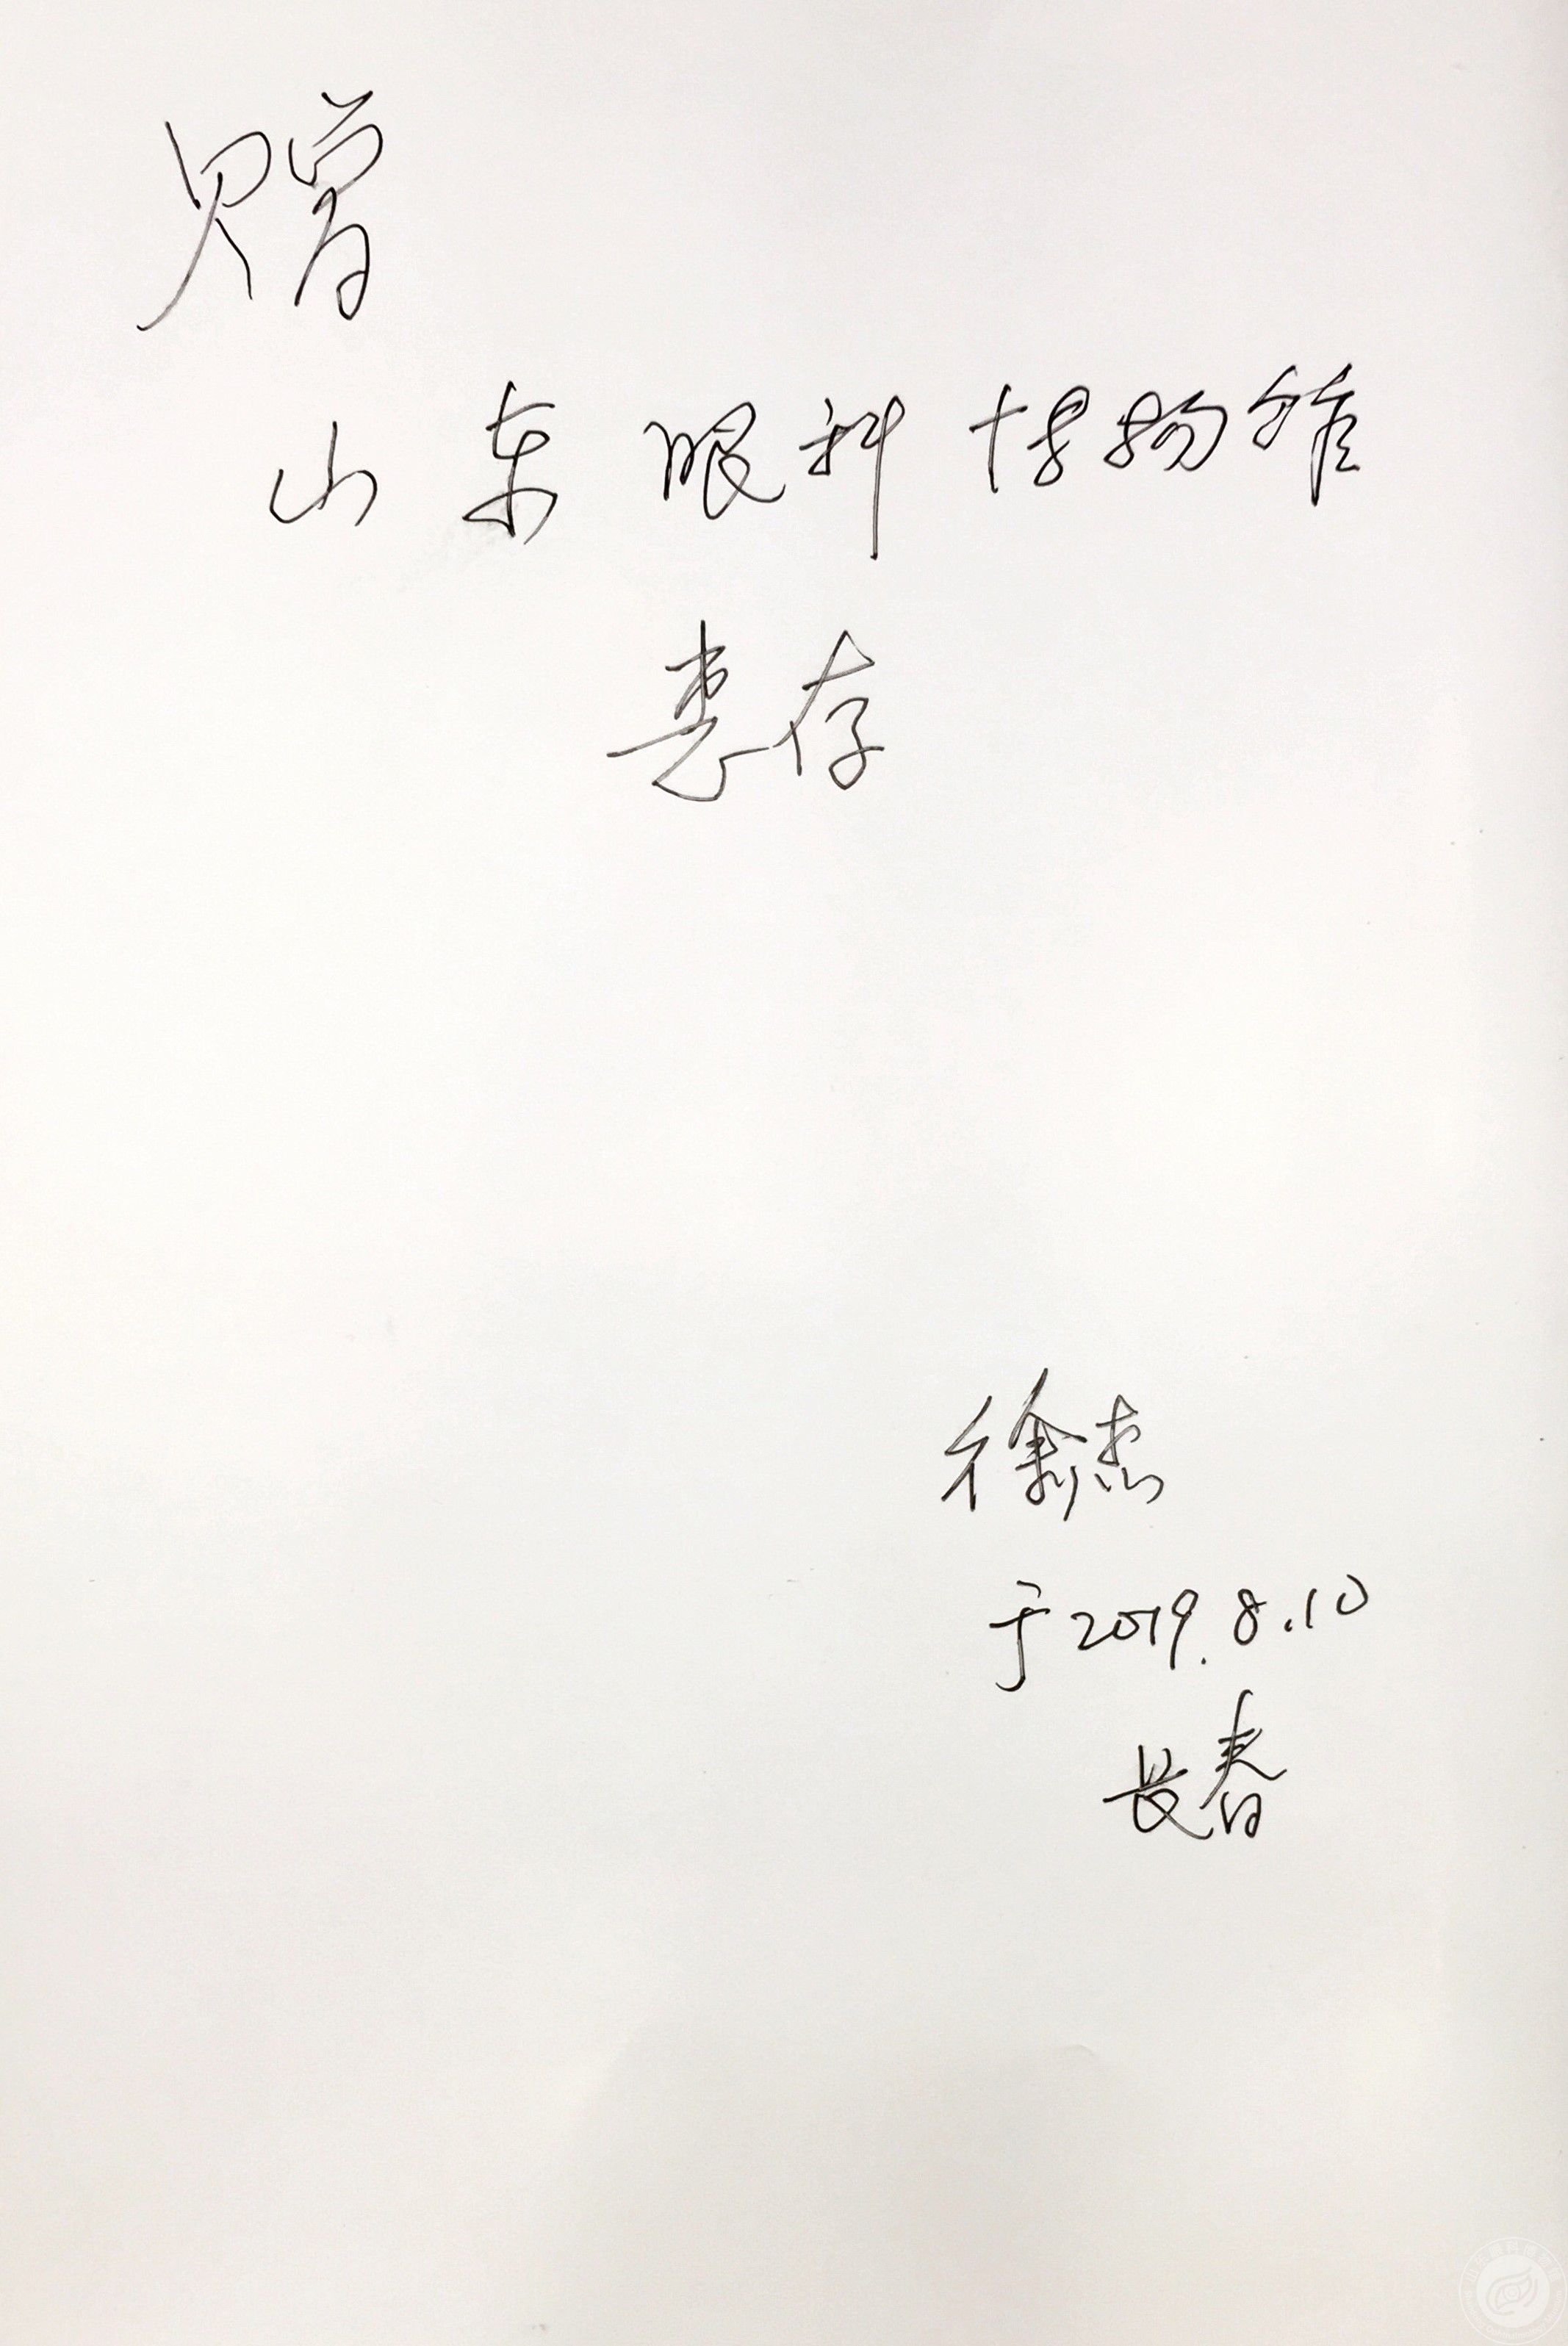 赠
山东眼科博物馆
惠存
徐杰
于2019.8.10
长春